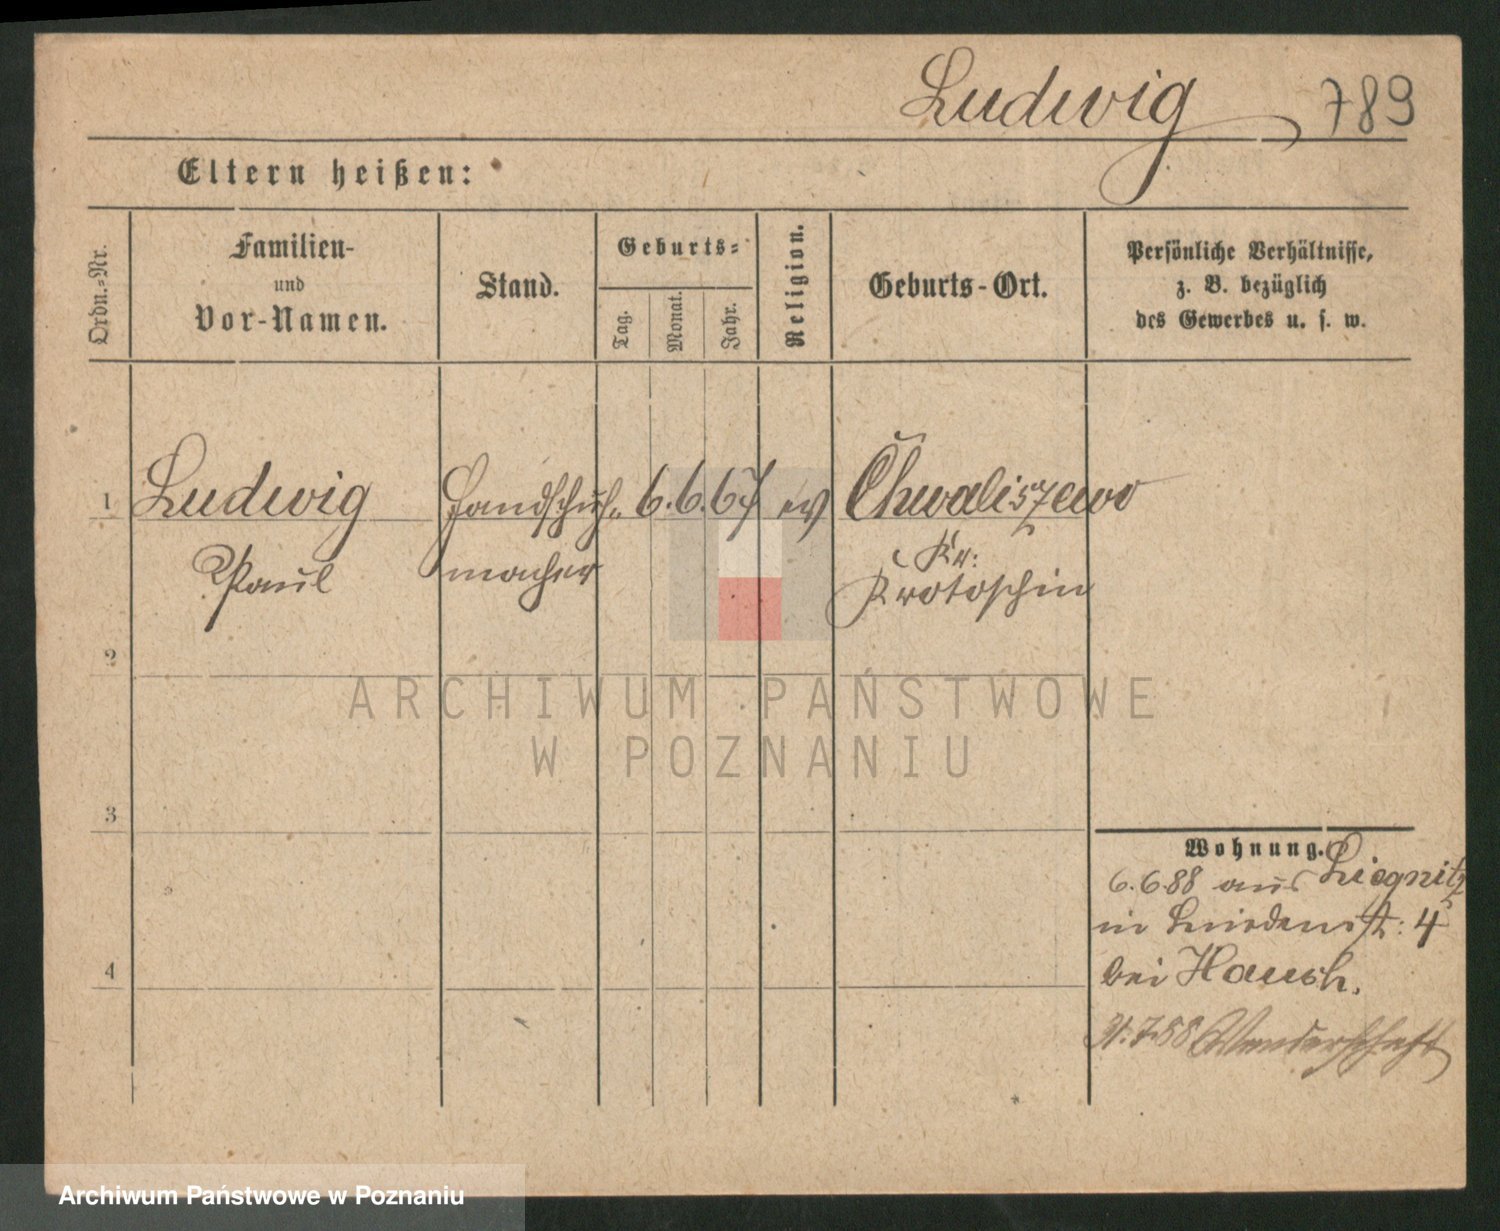 Ludwig 789
Eltern heißen:
Ordn.-Nr.
Familien-
und
Vor-Namen.
Stand.
Geburts-
Tag.
Monat.
Jahr.
Religion.
Geburts-Ort.
Persönliche Verhältnisse,
z. B. bezüglich
des Gewerbes u. s. w.
1 Ludwig Handschuh- 6. 6. 67 ev Chwaliszewo
Paul macher Kr:
Krotoschin
2
ARCHIWUM PAŃSTWOWE
W POZNANIU
3
4
Wohnung.
6.6.88 aus Liegnitz
in st: 4
bei
31.7.88 Wanderschaft
Archiwum Państwowe w Poznaniu